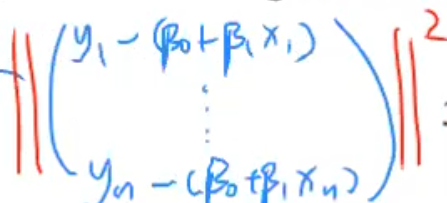 ‖ ( y₁ − (β₀ + β₁ x₁)
⋮
yₙ − (β₀ + β₁ xₙ) ) ‖² :